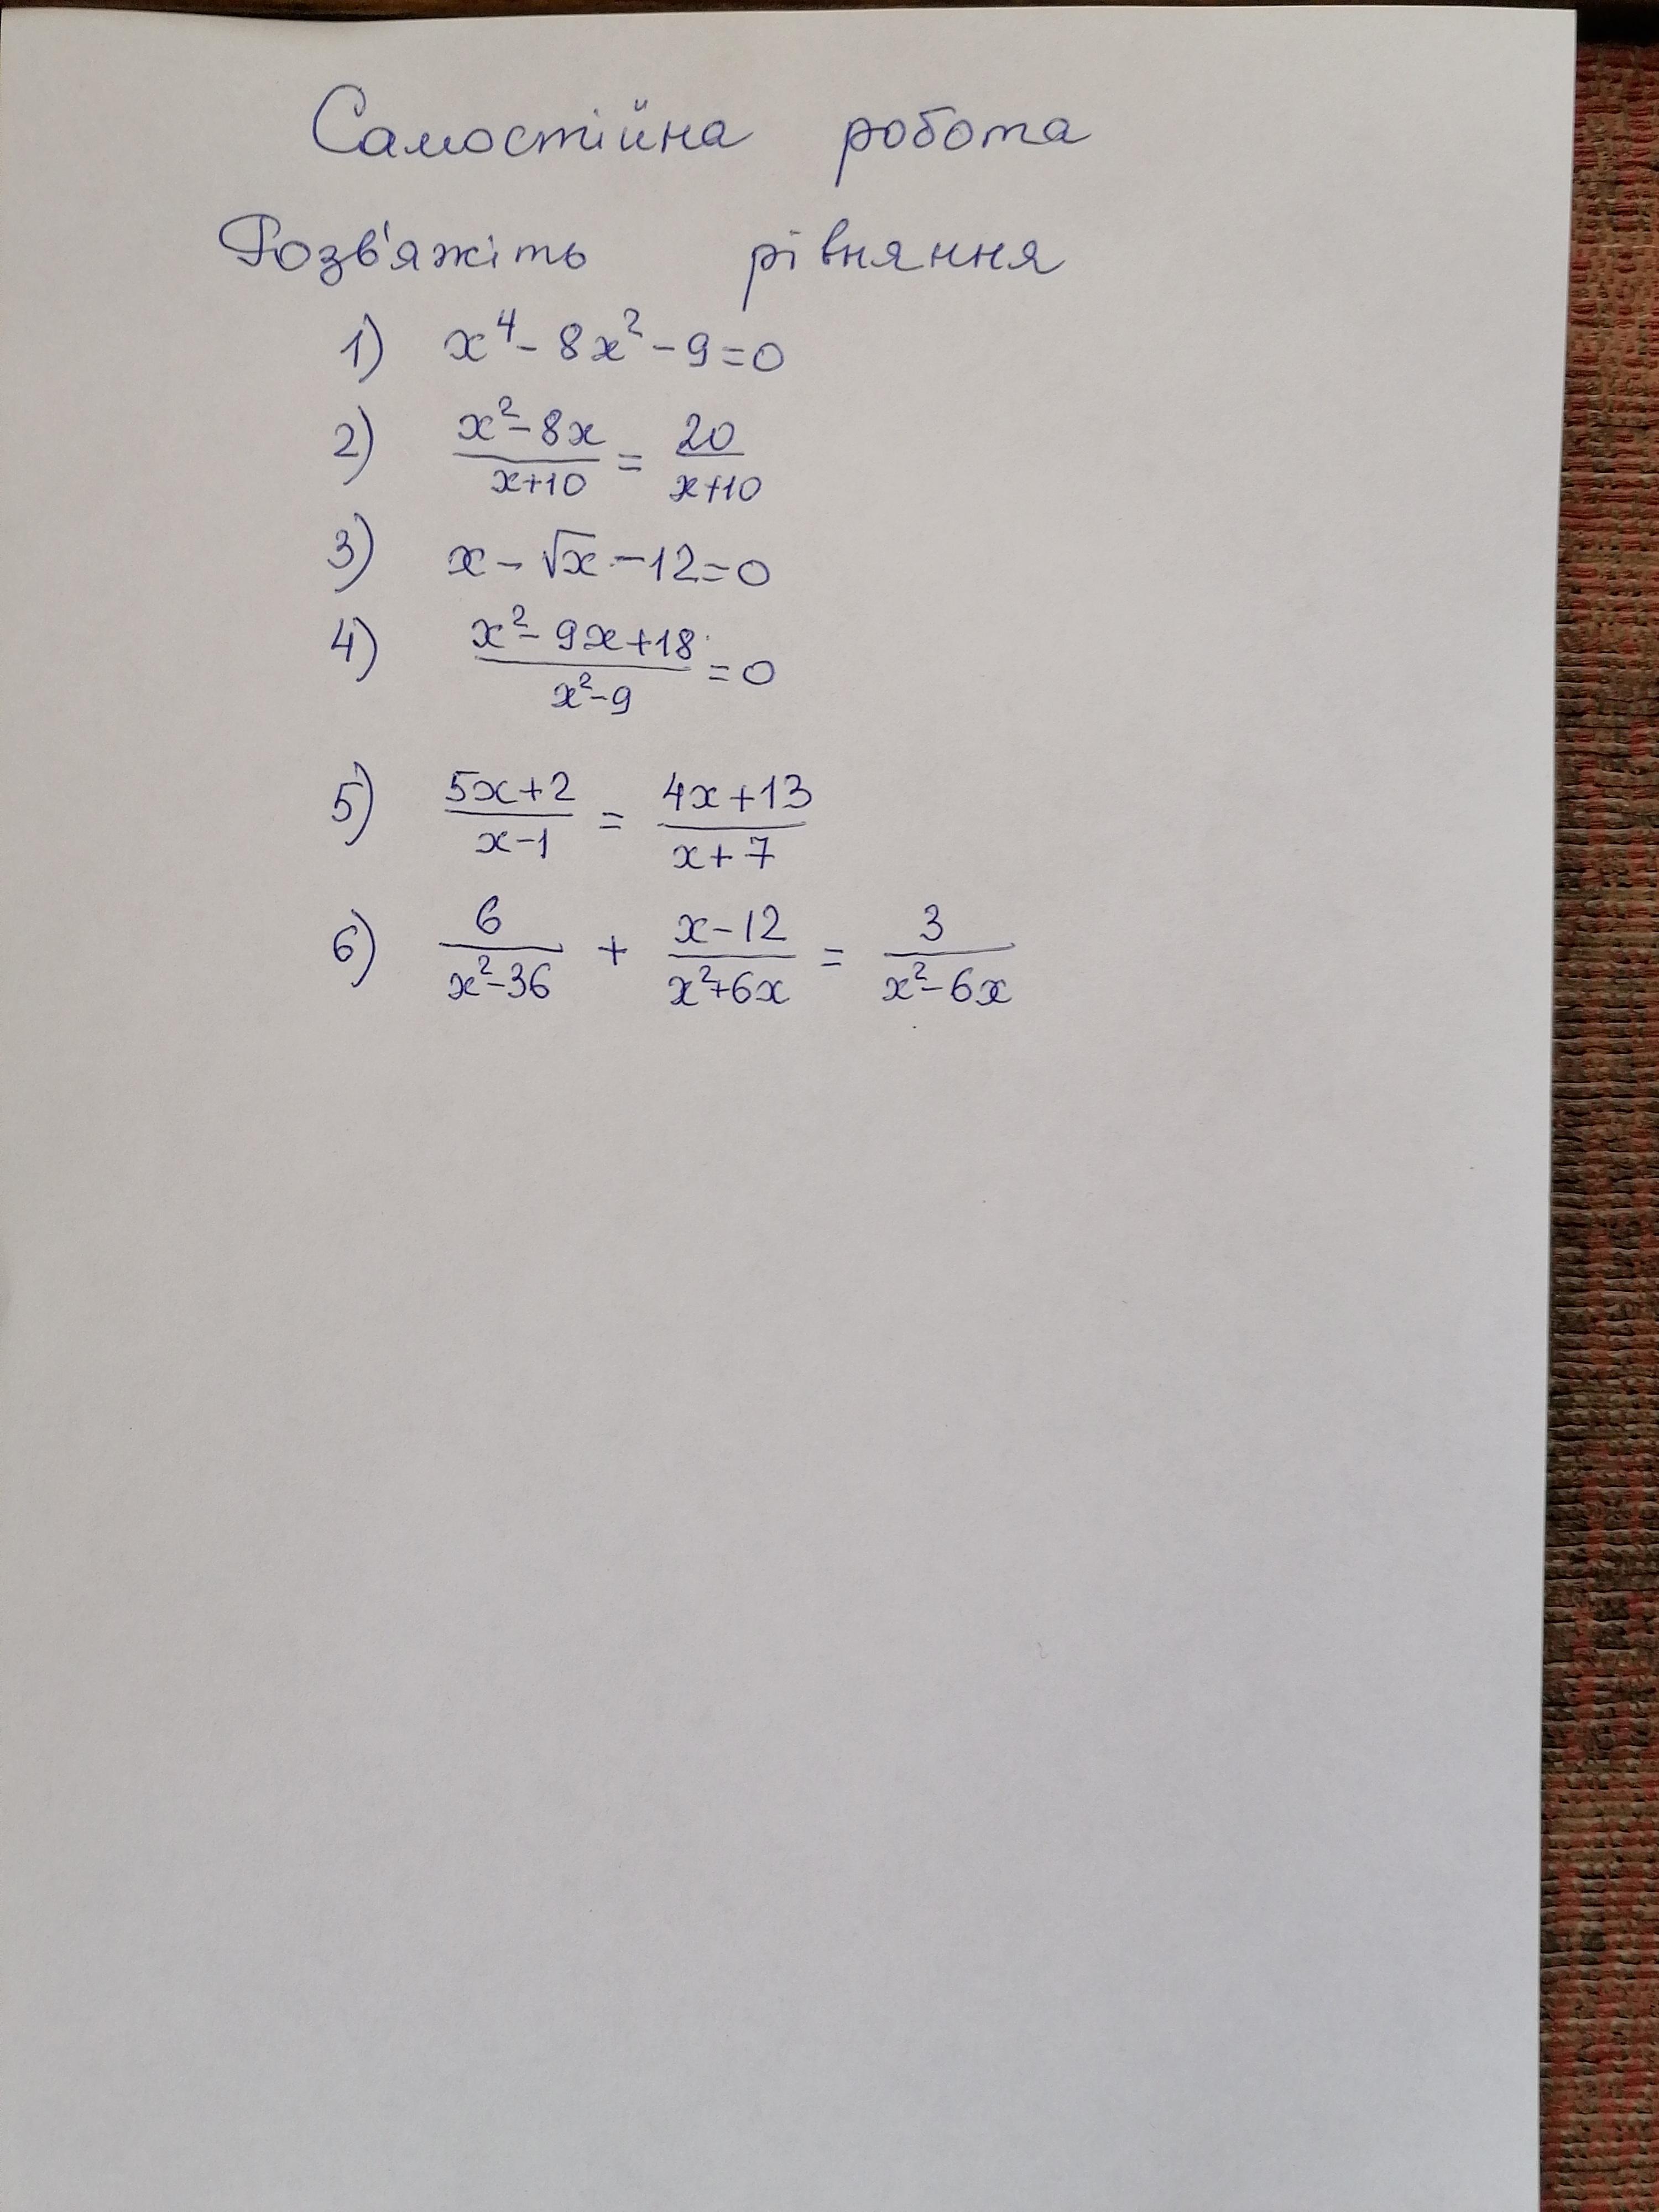 Самостійна робота
Розв'яжіть рівняння
1) x⁴ - 8x² - 9 = 0
2) (x² - 8x)/(x + 10) = 20/(x + 10)
3) x - √x - 12 = 0
4) (x² - 9x + 18)/(x² - 9) = 0
5) (5x + 2)/(x - 1) = (4x + 13)/(x + 7)
6) 6/(x² - 36) + (x - 12)/(x² + 6x) = 3/(x² - 6x)